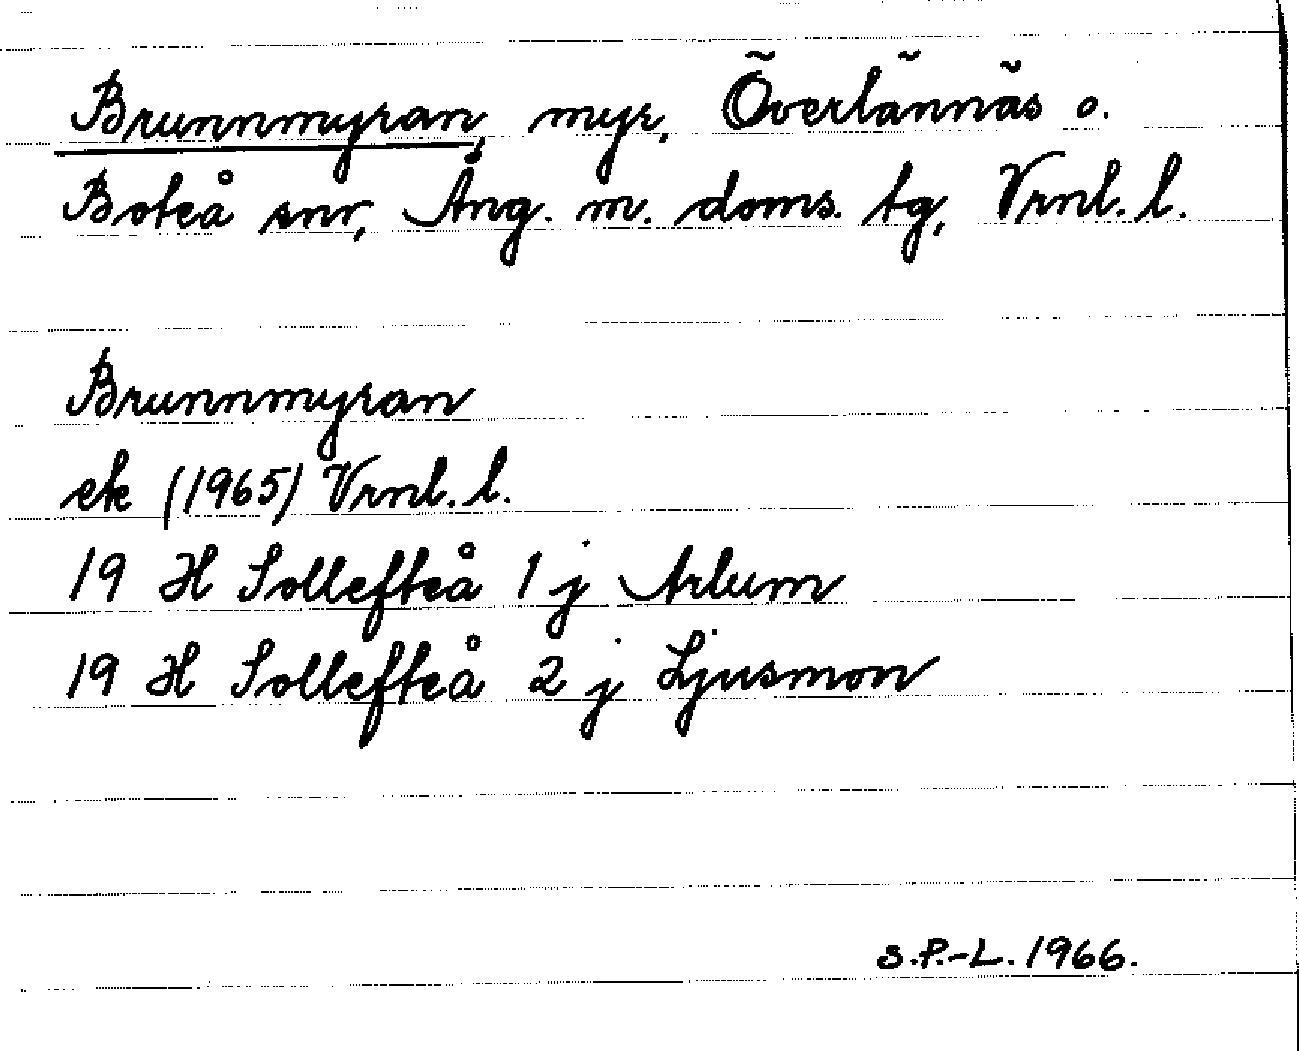 Brunnmyran, myr, Överlännäs o.
Boteå snr, Ång. m. doms. tg, Vrnl. l.
Brunnmyran
ek (1965) Vrnl. l.
19 H Sollefteå 1 j Arlum
19 H Sollefteå 2 j Ljusmon
S.P.-L. 1966.